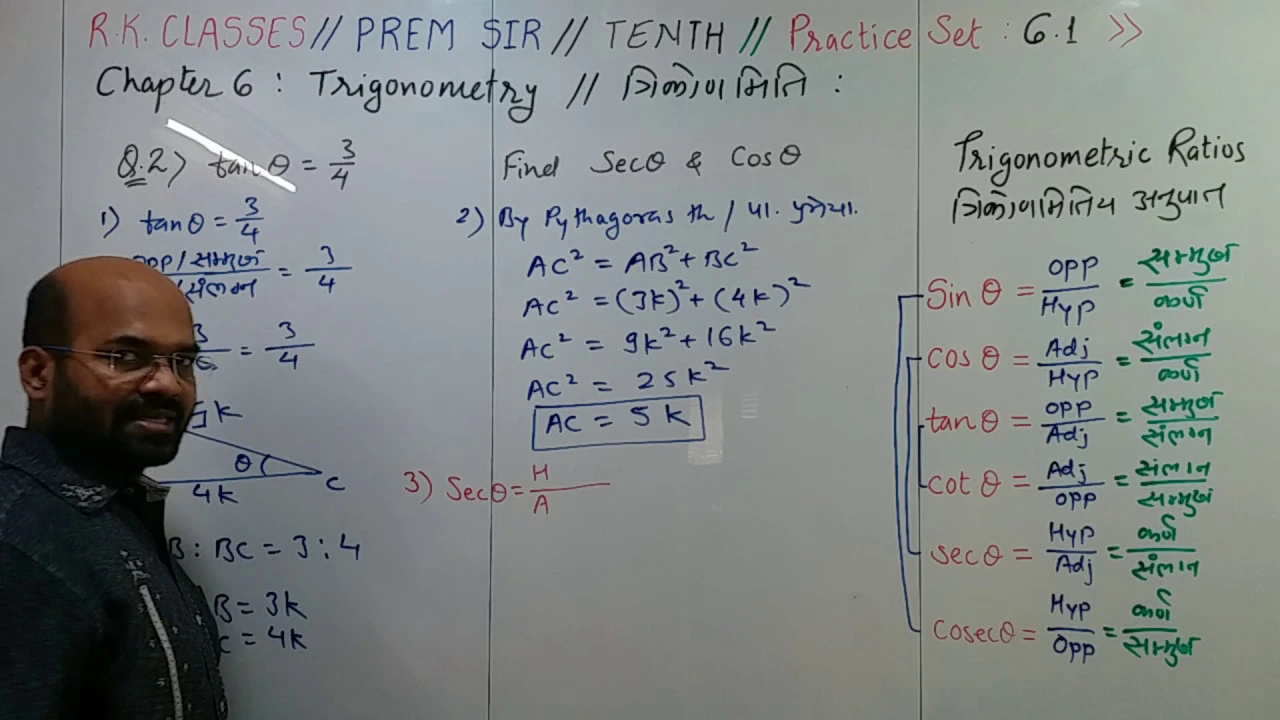 R.K. CLASSES // PREM SIR // TENTH // Practice Set : 6.1 >>
Chapter 6 : Trigonometry // त्रिकोणमिति :
Q.2> tanθ = 3/4 Find Secθ & Cosθ
1) tanθ = 3/4
opp/सम्मुख / संलग्न = 3/4
= 3/4
5k
θ
4k C
B : BC = 3 : 4
B = 3k
C = 4k
2) By Pythagoras th / पा. प्रमेय.
AC² = AB² + BC²
AC² = (3k)² + (4k)²
AC² = 9k² + 16k²
AC² = 25k²
AC = 5k
3) Secθ = H/A
Trigonometric Ratios
त्रिकोणमितिय अनुपात
Sin θ = OPP/Hyp = सम्मुख/कर्ण
cos θ = Adj/Hyp = संलग्न/कर्ण
tan θ = OPP/Adj = सम्मुख/संलग्न
cot θ = Adj/OPP = संलग्न/सम्मुख
sec θ = Hyp/Adj = कर्ण/संलग्न
cosec θ = Hyp/Opp = कर्ण/सम्मुख